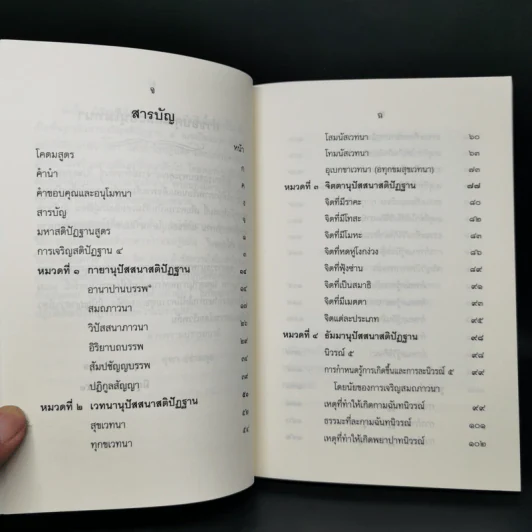 สารบัญ
หน้า
โคตมสูตร
คำนำ
คำขอบคุณและอนุโมทนา
สารบัญ
มหาสติปัฏฐานสูตร
การเจริญสติปัฏฐาน ๔
หมวดที่ ๑ กายานุปัสสนาสติปัฏฐาน
อานาปานบรรพ*
สมถภาวนา
วิปัสสนาภาวนา
อิริยาบถบรรพ
สัมปชัญญบรรพ
ปฏิกูลสัญญา
หมวดที่ ๒ เวทนานุปัสสนาสติปัฏฐาน
สุขเวทนา
ทุกขเวทนา
โสมนัสเวทนา ๖๐
โทมนัสเวทนา
อุเบกขาเวทนา (อทุกขมสุขเวทนา) ๗๓
หมวดที่ ๓ จิตตานุปัสสนาสติปัฏฐาน ๗๗
จิตที่มีราคะ ๘๐
จิตที่มีโทสะ ๘๒
จิตที่มีโมหะ
จิตที่หดหู่โงกง่วง
จิตที่ฟุ้งซ่าน ๘๙
จิตที่เป็นสมาธิ ๙๑
จิตที่มีเมตตา ๙๓
จิตแต่ละประเภท ๙๕
หมวดที่ ๔ ธัมมานุปัสสนาสติปัฏฐาน ๙๘
นิวรณ์ ๕ ๙๘
การกำหนดรู้การเกิดขึ้นและการละนิวรณ์ ๕
โดยนัยของการเจริญสมถภาวนา
เหตุที่ทำให้เกิดกามฉันทนิวรณ์ ๙๙
ธรรมะที่ละกามฉันทนิวรณ์ ๑๐๑
เหตุที่ทำให้เกิดพยาปาทนิวรณ์ ๑๐๒